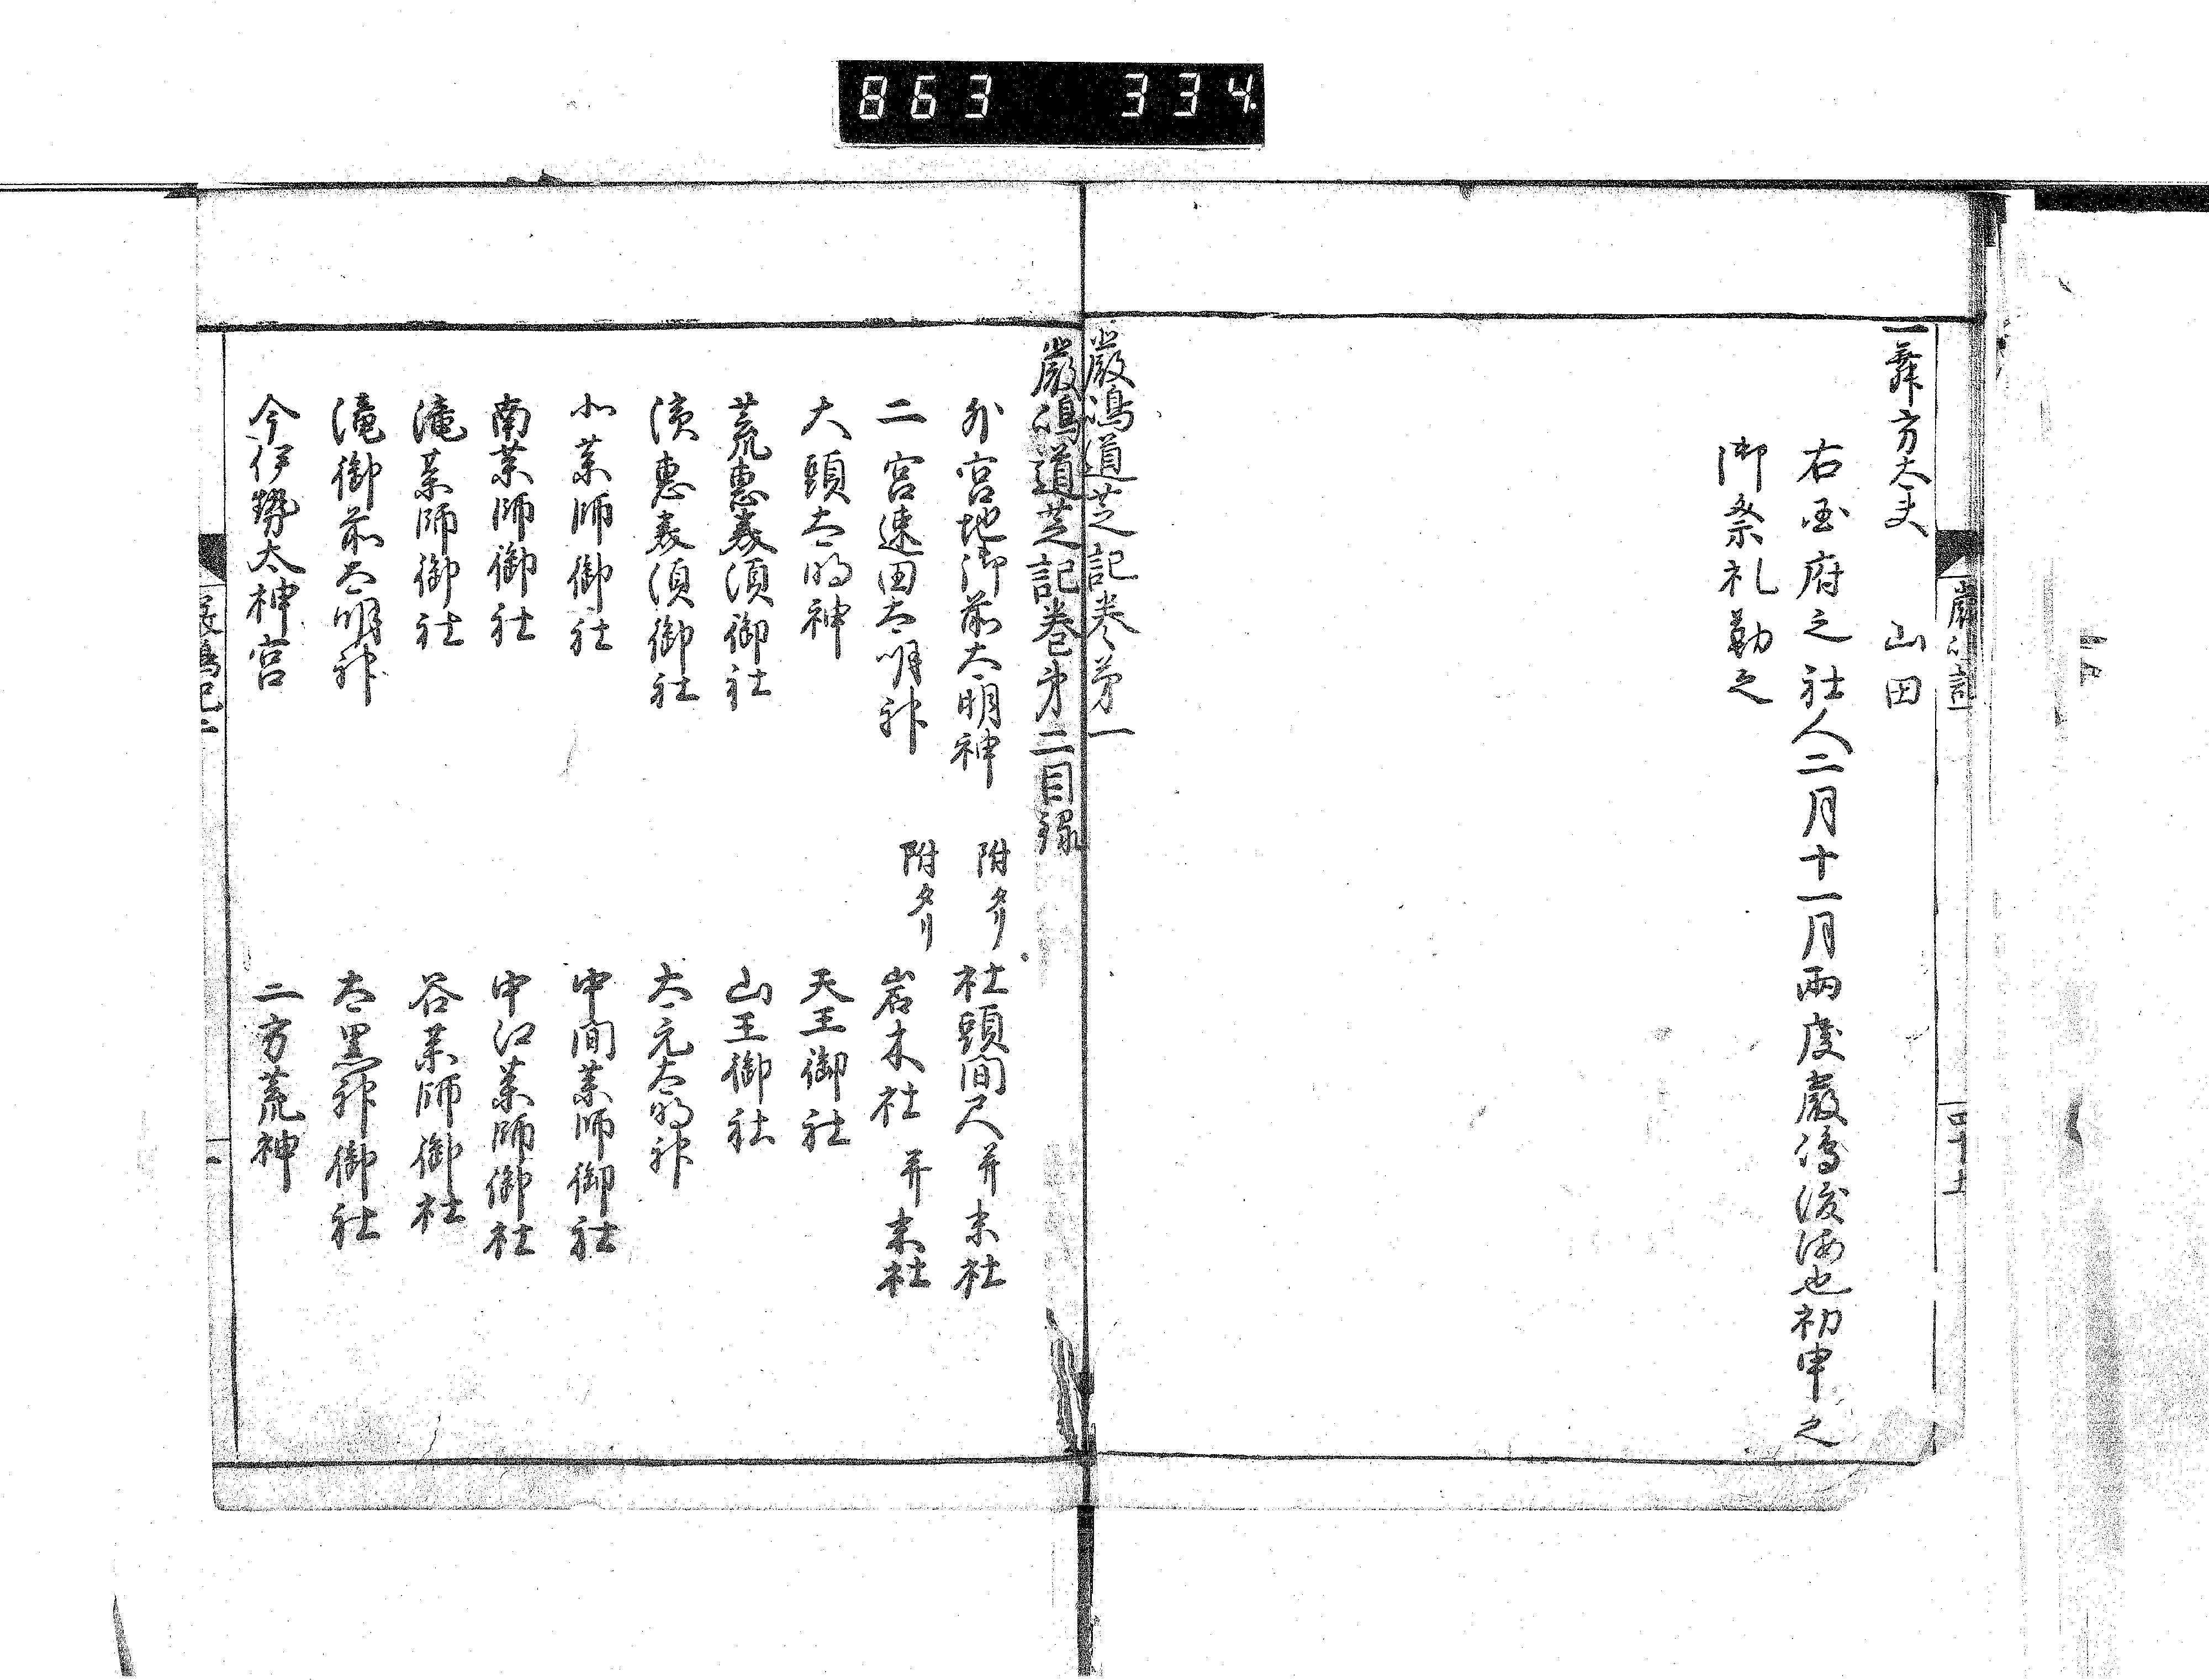 863 334
一舞方大夫 山田
右国府之社人二月十一月両度厳嶋渡海也初申之
御祭礼勤之
厳嶋道芝記巻第一
厳嶋道芝記巻第二目録
外宮地御前大明神 附タリ 社頭間尺 并末社
二宮速田大明神 附タリ 岩木社 并末社
大頭大明神 天王御社
荒恵美須御社 山王御社
濱恵美須御社 大元大明神
北薬師御社 中間薬師御社
南薬師御社 中江薬師御社
滝薬師御社 谷薬師御社
滝御前大明神 大黒神御社
今伊勢太神宮 二方荒神